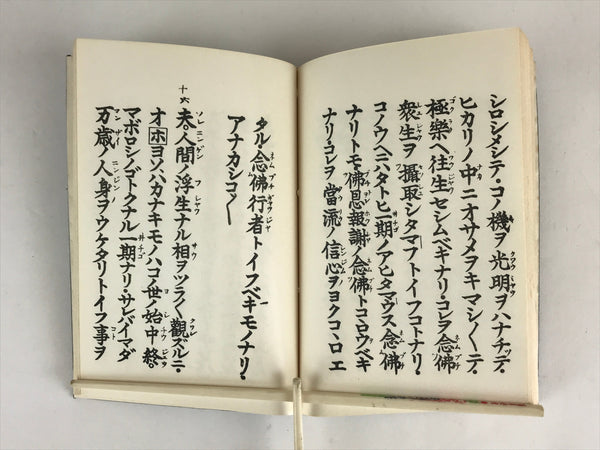 シロシメシテ・コノ機ヲ光明ヲハナチッテ・
ヒカリノ中ニオサメヲキマシ〱テ・
極樂ヘ往生セシムベキナリ・コレヲ念佛
衆生ヲ攝取シタマフトイフコトナリ・
コノウヘニハタトヒ一期ノアヒタマウス念佛
ナリトモ・佛恩報謝ノ念佛トコロウベキ
ナリ・コレヲ當流ノ信心ヲヨクコヽロエ
タル念佛行者トイフベキモノナリ・
アナカシコ〱
十六
夫。人間ノ浮生ナル相ヲツラ〱觀ズルニ・
オホヨソハカナキモノハコノ世ノ始中終。
マボロシノゴトクナル一期ナリ・サレバイマダ
万歳ノ人身ヲウケタリトイフ事ヲ